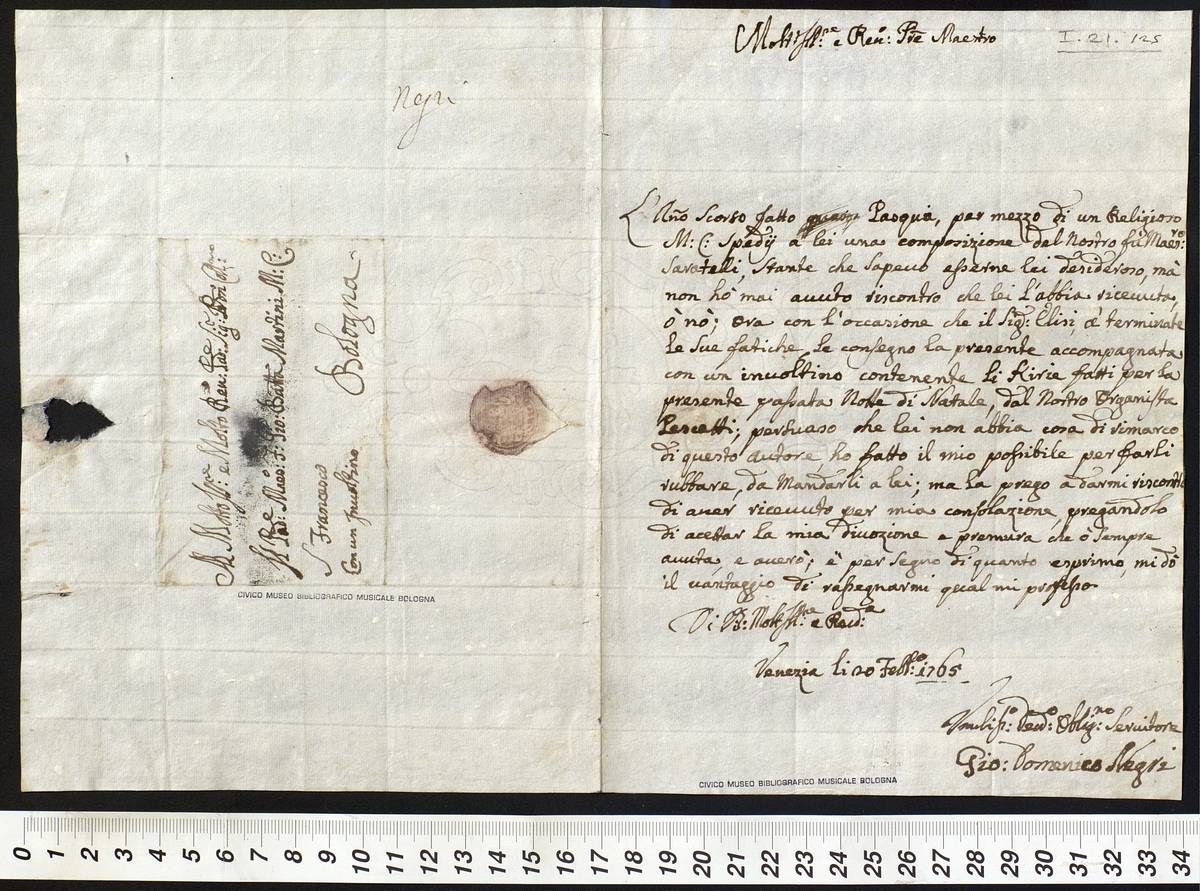 Negri
Al Molto Ill:re e Molto Rev: Pad: Sig: Pron Col:mo
Il Pad: Maes: F: Gio: Batta Martini M: C:
S Francesco
Con un Involtino
Bologna
CIVICO MUSEO BIBLIOGRAFICO MUSICALE BOLOGNA
Molt'Ill:re e Rev:o Pre Maestro
I. 21. 125
L'Año Scorso fatto Pasqua, per mezzo di un Religioso
M: C: Spedij a lei una composizione del Nostro fù Maes:ro
Saratelli, stante che sapevo esserne lei desideroso, mà
non hò mai avuto riscontro che lei l'abbia ricevuta,
ò nò; Ora con l'occasione che il Sig: Elisi, à terminate
le sue fatiche, le consegno la presente accompagnata
con un involtino contenente li Kirie fatti per la
presente passata Notte di Natale, dal Nostro Organista
Pescetti; persuaso che lei non abbia cosa di rimarco
di questo autore, ho fatto il mio possibile per farli
rubbare, da Mandarli a lei; ma la prego a darmi riscontro
di aver ricevuto per mia consolazione, pregandolo
di acettar la mia divozione e premura che ò sempre
avuta e averò; è per segno di quanto esprimo, mi dò
il vantaggio di rassegnarmi qual mi professo
Di V: Molt'Ill:re e Revd:a
Venezia li 20 Febb:o 1765
Umilis:o Devd:o Oblig:mo Servitore
Gio: Domenico Negri
CIVICO MUSEO BIBLIOGRAFICO MUSICALE BOLOGNA
0 1 2 3 4 5 6 7 8 9 10 11 12 13 14 15 16 17 18 19 20 21 22 23 24 25 26 27 28 29 30 31 32 33 34